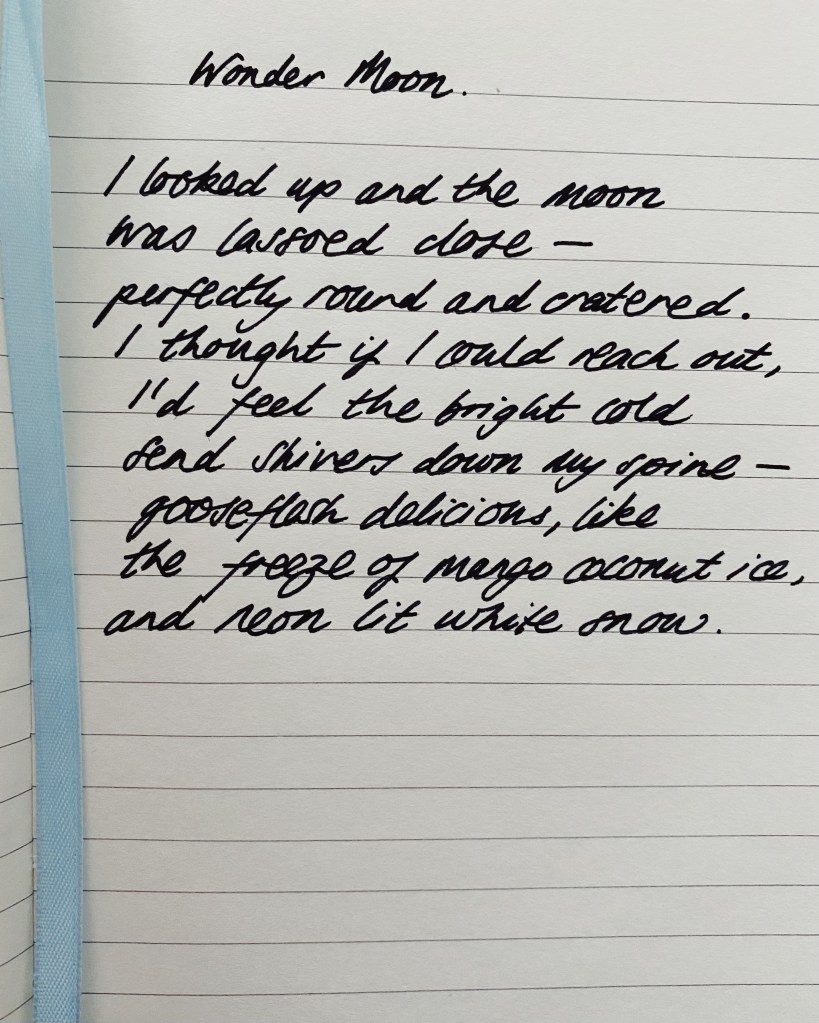 Wonder Moon.
I looked up and the moon
was lassoed close —
perfectly round and cratered.
I thought if I could reach out,
I'd feel the bright cold
send shivers down my spine —
gooseflesh delicious, like
the freeze of mango coconut ice,
and neon lit white snow.